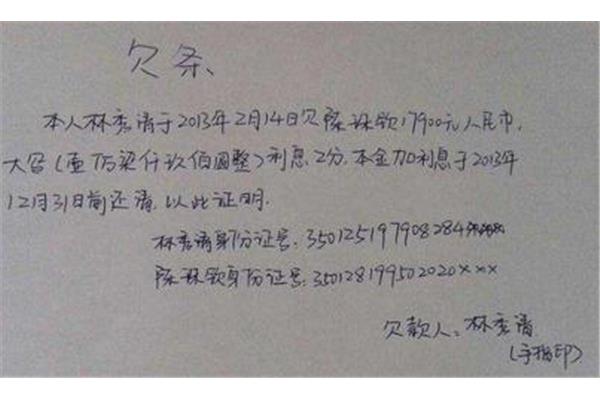 欠条、
本人林秀清于2013年2月14日欠陈珠钦17900元人民币,
大写(壹万梁仟玖佰圆整)利息2分.本金加利息于2013年
12月31日前还清,以此证明.
林秀清身份证号:350125197908284
陈珠钦身份证号:350128199502020xxx
欠款人:林秀清
(手指印)